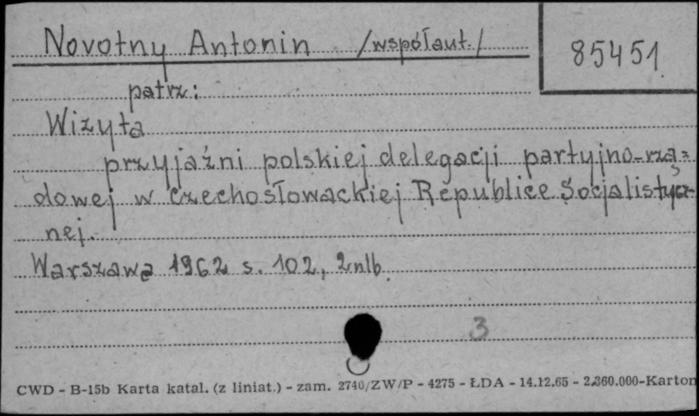 Novotny Antonin /współaut./
85451
patrz:
Wizyta
przyjaźni polskiej delegacji partyjno-rzą=
dowej w Czechosłowackiej Republice Socjalistycz-
nej.
Warszawa 1962 s. 102, 2nlb.
3
CWD - B-15b Karta katal. (z liniat.) - zam. 2740/ZW/P - 4275 - ŁDA - 14.12.65 - 2.360.000-Karton